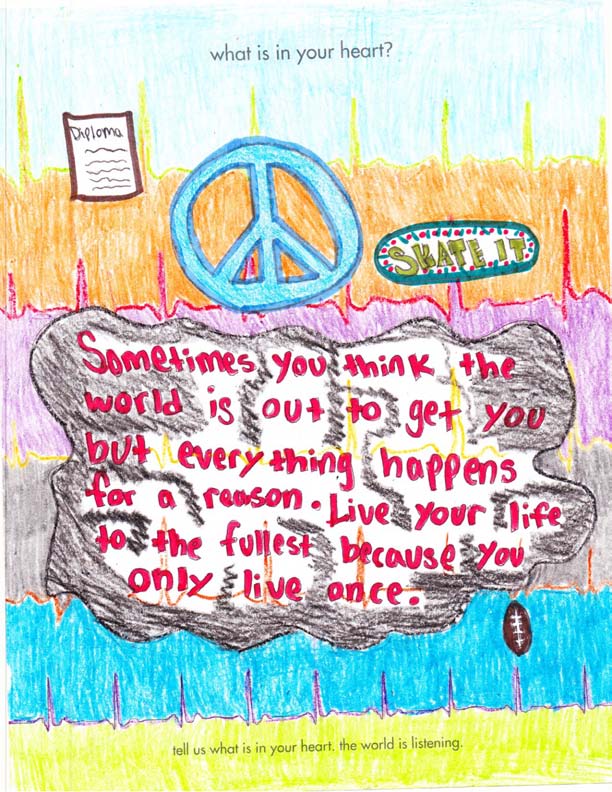 what is in your heart?
Diploma
SKATE IT
Sometimes you think the
world is out to get you
but everything happens
for a reason. Live your life
to the fullest because you
only live once.
tell us what is in your heart. the world is listening.